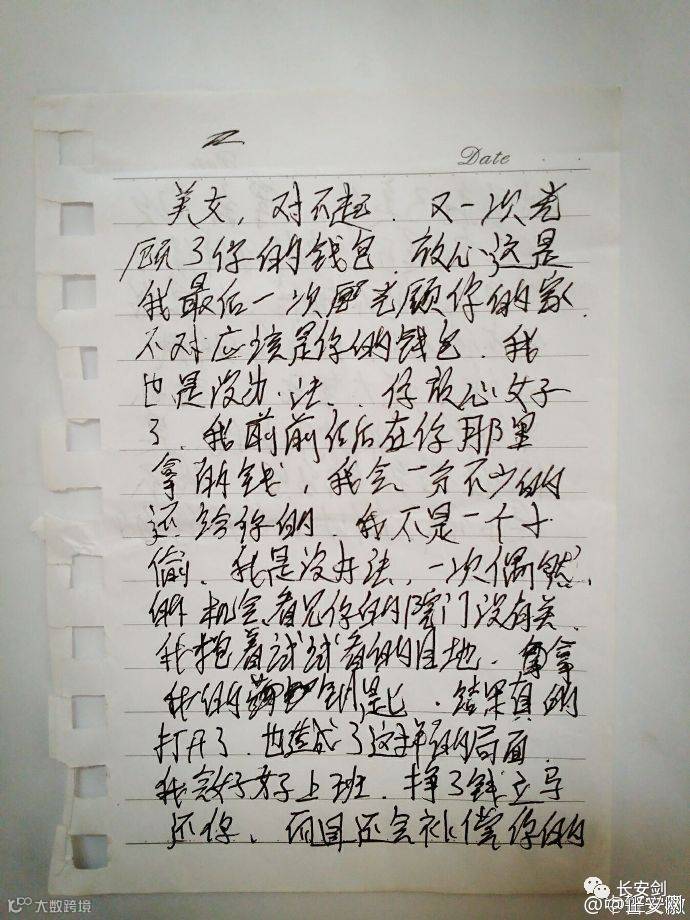 Date
美女，对不起．又一次光
顾了你的钱包．放心，这是
我最后一次光顾你的家．
不对应该是你的钱包．我
也是没办法．．你放心女子
了．我前前后后在你那里
拿的钱，我会一分不少的
还给你的．我不是一个小
偷．我是没办法．一次偶然
的机会看见你的院门没有关．
我抱着试试看的目地．拿
我的钥匙．结果真的
打开了．也造成了这样的局面．
我会好好上班．挣了钱立马
还你．而且还会补偿你的
长安剑
大数跨境